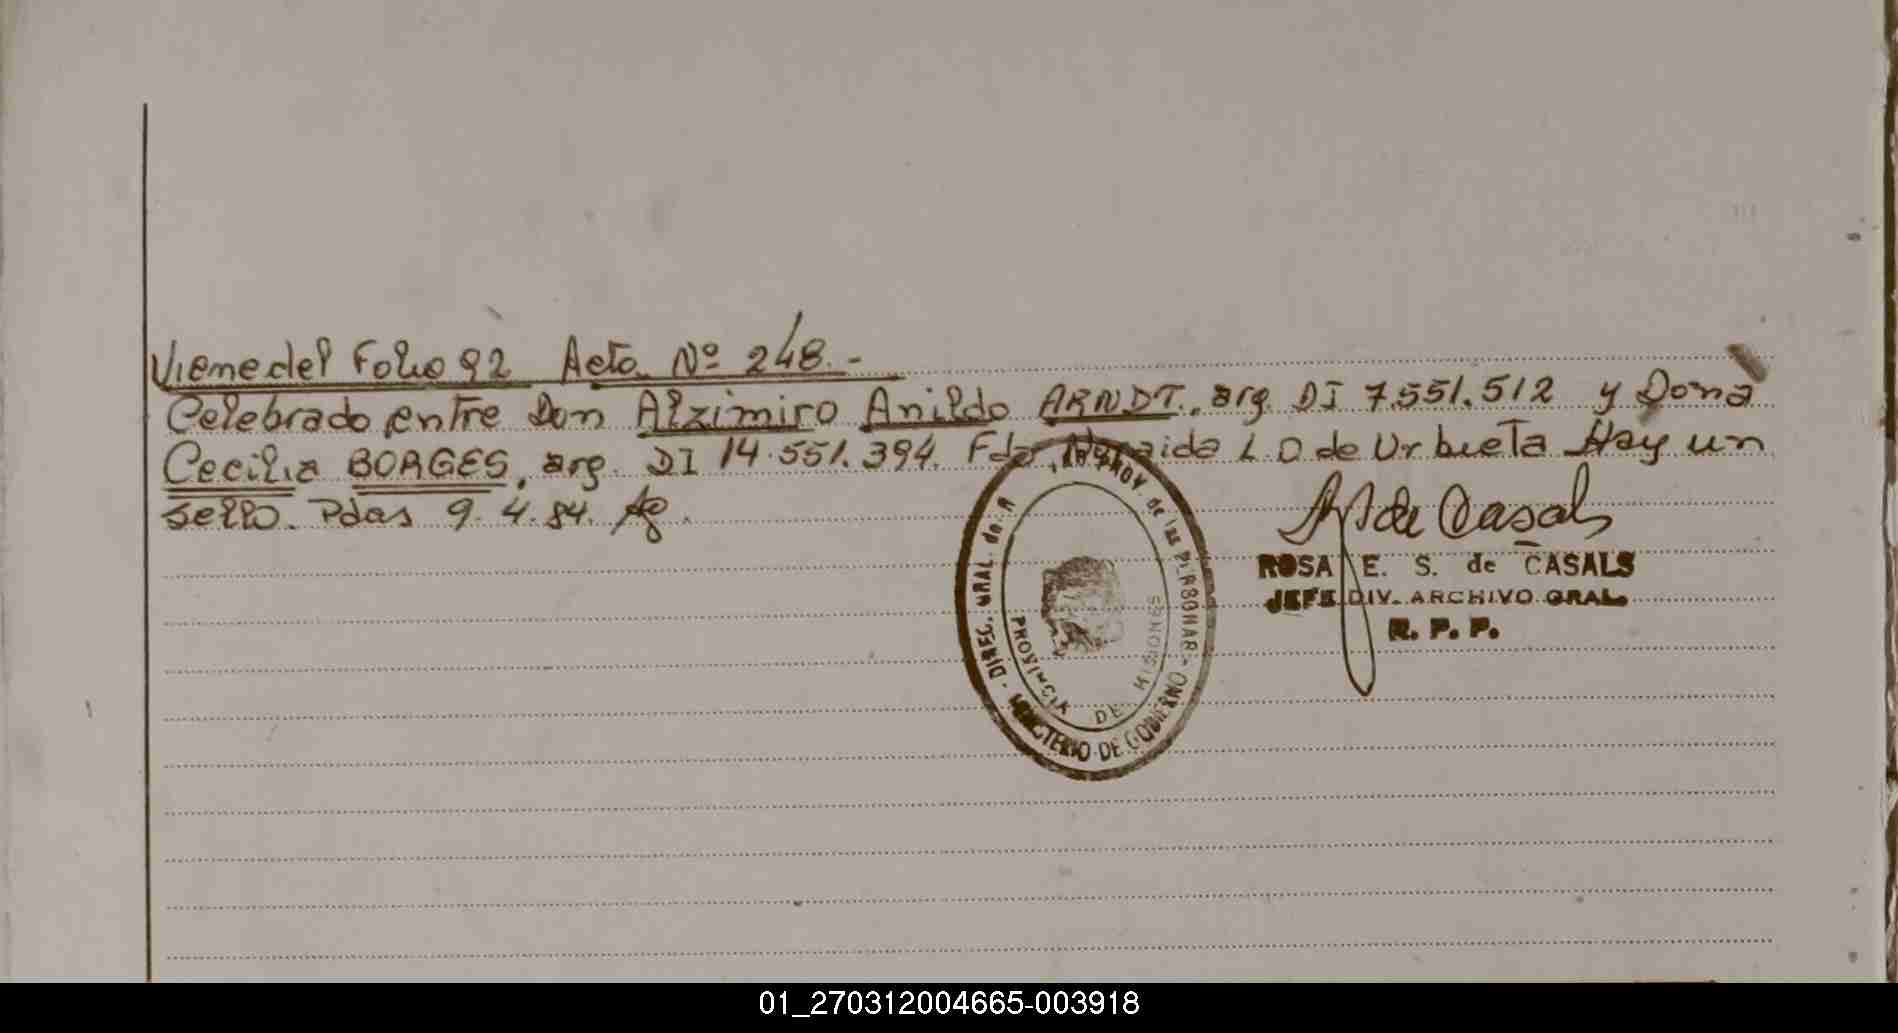 Viene del Folio 92 Acta Nº 248.-
Celebrado entre Don Alzimiro Anildo ARNDT, arg. DI 7.551.512 y Doña
Cecilia BORGES, arg. DI 14.551.394. Fdo L D de Urbieta Hay un
sello. Pdas 9.4.84.
de Casals
ROSA E. S. de CASALS
JEFE DIV. ARCHIVO GRAL.
R. P. P.
DIREC. GRAL. de PROV. de las PERSONAS - MINISTERIO DE GOBIERNO -
PROVINCIA DE MISIONES
01_270312004665-003918